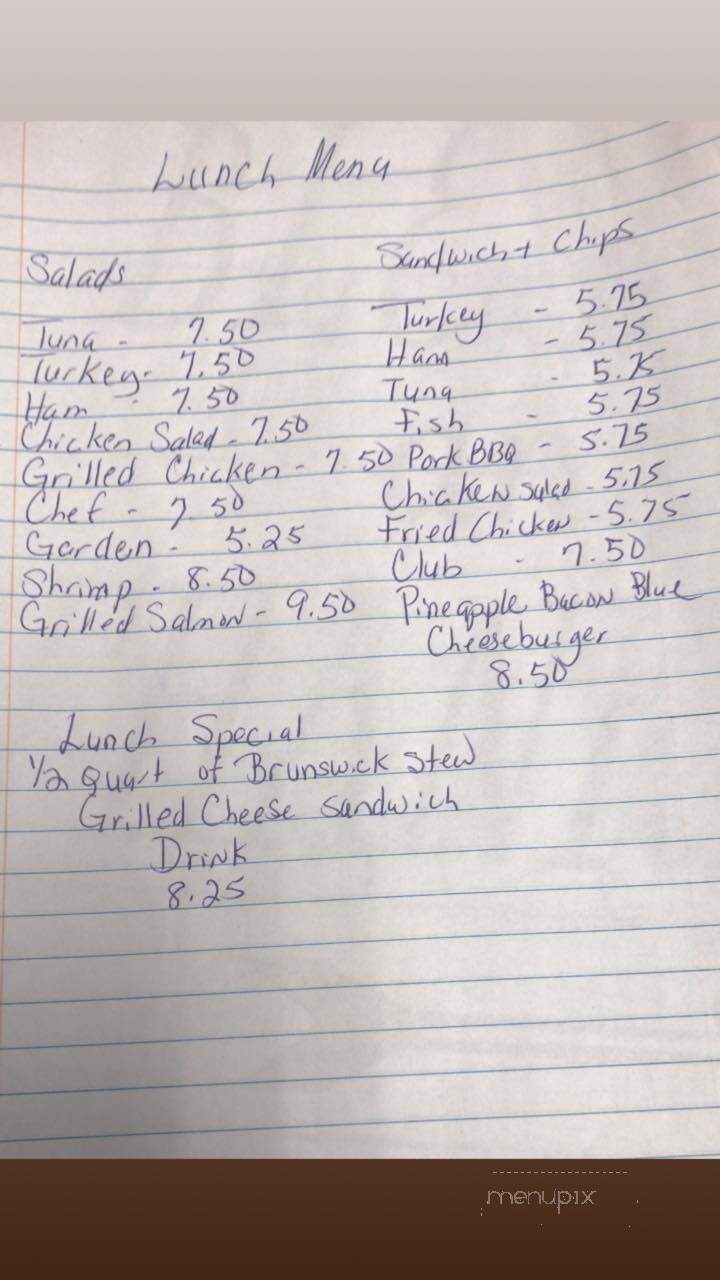 Lunch Menu
Salads
Tuna - 7.50
Turkey - 7.50
Ham - 7.50
Chicken Salad - 7.50
Grilled Chicken - 7.50
Chef - 7.50
Garden - 5.25
Shrimp - 8.50
Grilled Salmon - 9.50
Sandwich + Chips
Turkey - 5.75
Ham - 5.75
Tuna - 5.75
Fish - 5.75
Pork BBQ - 5.75
Chicken Salad - 5.75
Fried Chicken - 5.75
Club - 7.50
Pineapple Bacon Blue
Cheeseburger
8.50
Lunch Special
1/2 Quart of Brunswick Stew
Grilled Cheese Sandwich
Drink
8.25
menupix